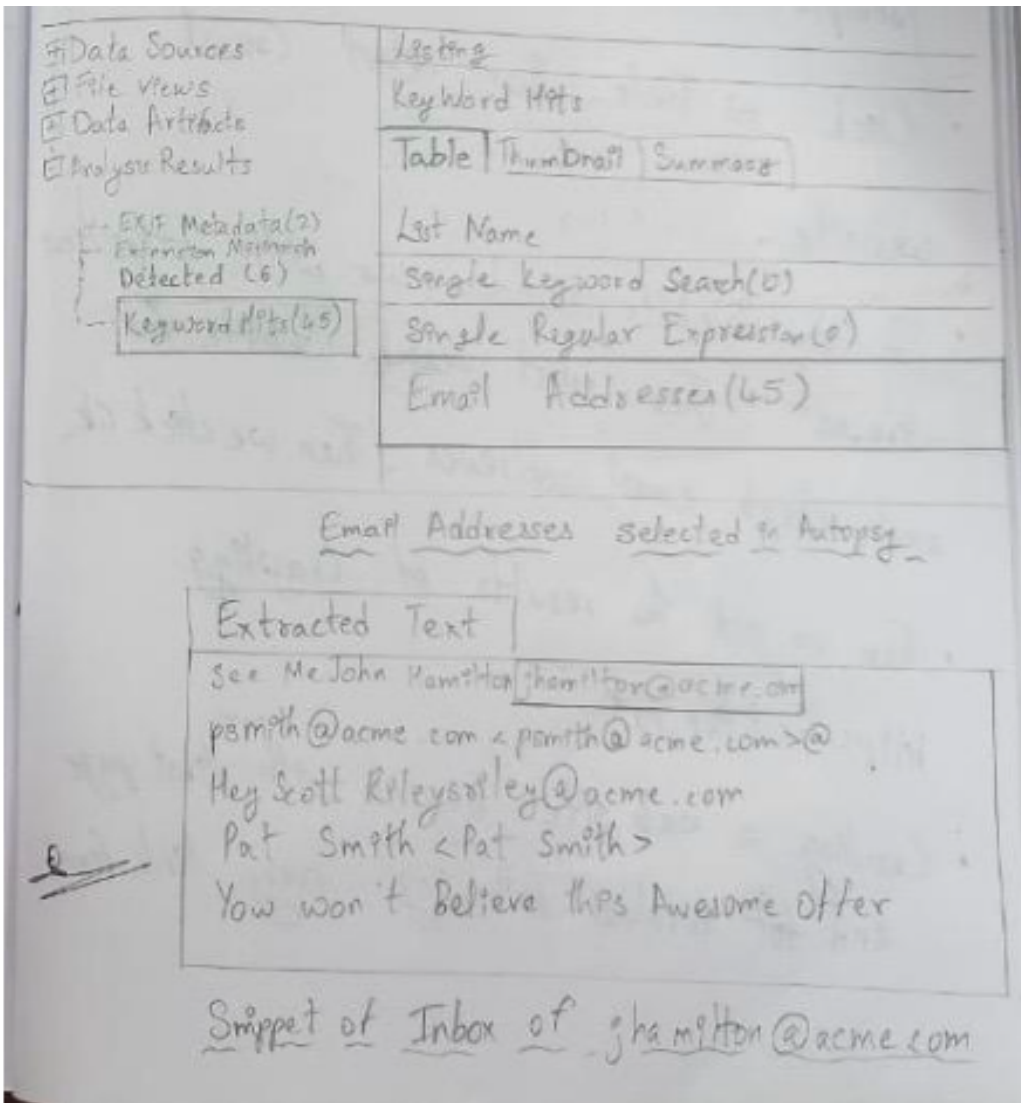 Data Sources
File Views
Data Artifacts
Analysis Results
EXIF Metadata(2)
Extension Mismatch
Detected (6)
Keyword Hits(45)
Listing
KeyWord Hits
Table Thumbnail Summary
List Name
Single Keyword Search(0)
Single Regular Expression(0)
Email Addresses(45)
Email Addresses selected in Autopsy
Extracted Text
See Me John Hamilton jhamilton@acme.com
psmith@acme.com <psmith@acme.com>@
Hey Scott Rileysriley@acme.com
Pat Smith <Pat Smith>
Yow won't Believe this Awesome Offer
Snippet of Inbox of jhamilton@acme.com